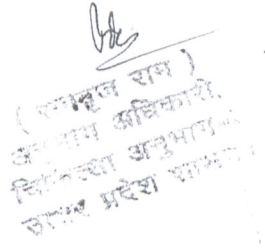 ( रामबृज राम )
अनुभाग अधिकारी,
चिकित्सा अनुभाग
उत्तर प्रदेश शासन